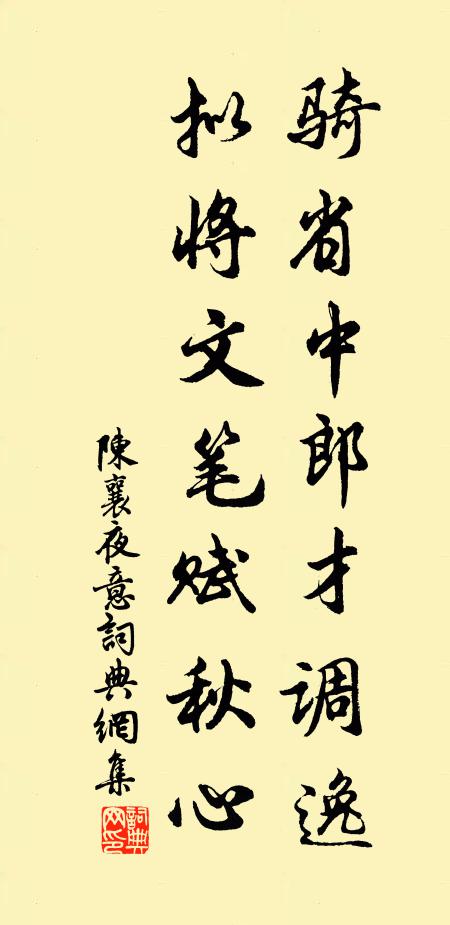 骑省中郎才调逸
拟将文笔赋秋心
陳襄夜意詞典網集
詞典网印